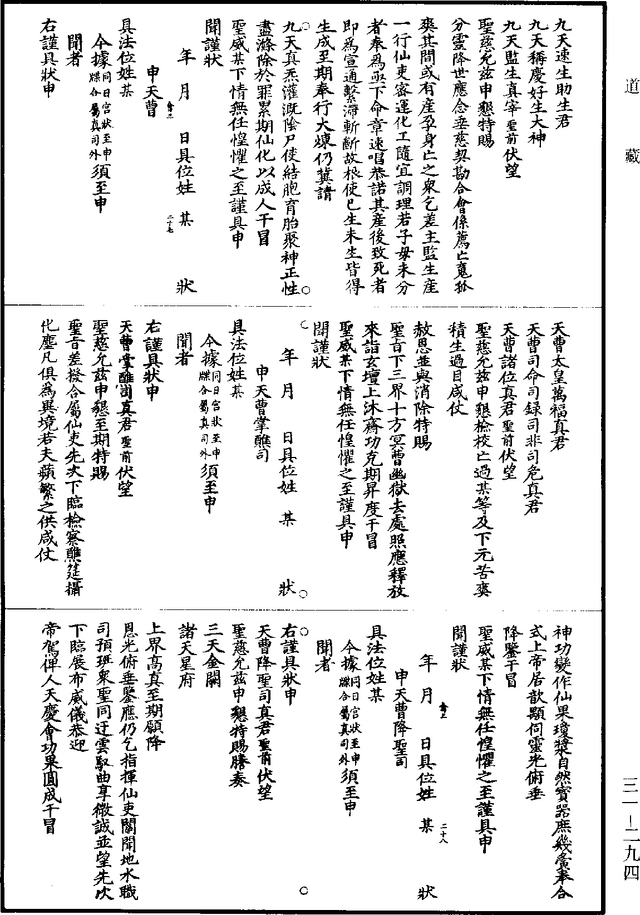 道藏
九天速生助生君
九天稱慶好生大神
九天監生真宰聖前伏望
聖慈允玆申懇特賜
分靈降世應念垂慈契勘合會係薦亡𩲸孤
爽其間或有產孕身亡之衆乞差主監生產
一行仙吏密運化工隨宜調理若子母未分
者奉為亟下命章速唱恭諾其產後致死者
即為宣通繫滯斬斷故根使已生未生皆得
生成至期奉行大煉仍冀請
九天真炁灌溉陰尸使結胞育胎聚神正性
盡滌除於罪累期仙化以成人干冒
聖威某下情無任惶懼之至謹具申
聞謹狀
年 月 日具位姓 某 狀
申天曹
二十七
具法位姓某
今據同日宮狀至申牒合屬真司外須至申
聞者
右謹具狀申
天曹太皇萬福真君
天曹司命司録司非司危真君
天曹諸位真君聖前伏望
聖慈允玆申懇檢校亡過某等及下元苦爽
積生過目咸仗
赦恩並與消除特賜
聖旨下三界十方冥曹幽獄去處照應釋放
來詣玄壇上沐齋功克期昇度干冒
聖威某下情無任惶懼之至謹具申
聞謹狀
年 月 日具位姓 某 狀
申天曹掌醮司
具法位姓某
今據同日宮狀至申牒合屬真司外須至申
聞者
右謹具狀申
天曹掌醮司真君聖前伏望
聖慈允玆申懇至期特賜
聖旨差撥合屬仙吏先次下臨檢察醮筵攝
化塵凡俱為異境若夫蘋蘩之供咸仗
神功變作仙果瓊漿自然寶器庶幾當奉合
式上帝居歆顒伺靈光俯垂
降鑒干冒
聖威某下情無任惶懼之至謹具申
聞謹狀
年 月 日具位姓 某 狀
二十八
申天曹降聖司
具法位姓某
今據同日宮狀至申牒合屬真司外須至申
聞者
右謹具狀申
天曹降聖司真君聖前伏望
聖慈允玆申懇特賜騰奏
三天金闕
諸天星府
上界高真至期願降
恩光俯垂鑒應仍乞指揮仙吏關聞地水職
司預班衆聖同迂雲馭曲享微誠並望先次
下臨展布威儀恭迎
帝駕俾人天慶會功果圓成干冒
三一—二九四